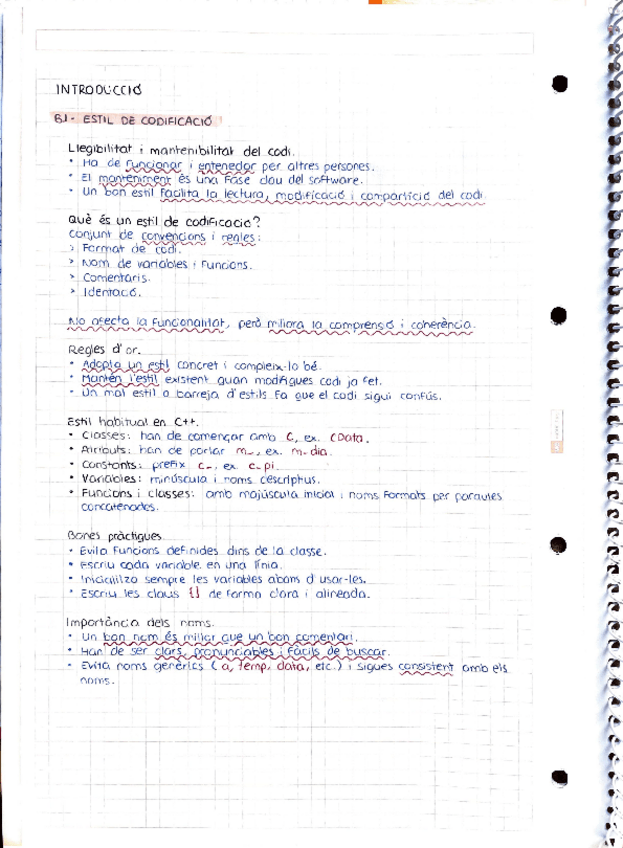 INTRODUCCIÓ
6.1- ESTIL DE CODIFICACIÓ
Llegibilitat i mantenibilitat del codi.
• Ha de funcionar i entenedor per altres persones.
• El manteniment és una fase clau del software.
• Un bon estil facilita la lectura, modificació i compartició del codi
Què és un estil de codificació?
Conjunt de convencions i regles:
> Format de codi.
> Nom de variables i funcions.
> Comentaris.
> Identació.
No afecta la funcionalitat, però millora la comprensió i coherència.
Regles d'or.
• Adopta un estil concret i compleix-lo bé.
• Mantén l'estil existent quan modifiques codi ja fet.
• Un mal estil o barreja d'estils fa que el codi sigui confús.
Estil habitual en C++.
• Classes: han de començar amb C, ex. CData.
• Atributs: han de portar m_, ex. m_dia.
• Constants: prefix c_, ex. c_pi.
• Variables: minúscula i noms descriptius.
• Funcions i classes: amb majúscula inicial i noms formats per paraules
concatenades.
Bones pràctiques
• Evita funcions definides dins de la classe.
• Escriu cada variable en una línia.
• Inicialitza sempre les variables abans d'usar-les.
• Escriu les claus {} de forma clara i alineada.
Importància dels noms.
• Un bon nom és millor que un bon comentari.
• Han de ser clars, pronunciables i fàcils de buscar.
• Evita noms genèrics (a, temp, data, etc.) i sigues consistent amb els
noms.